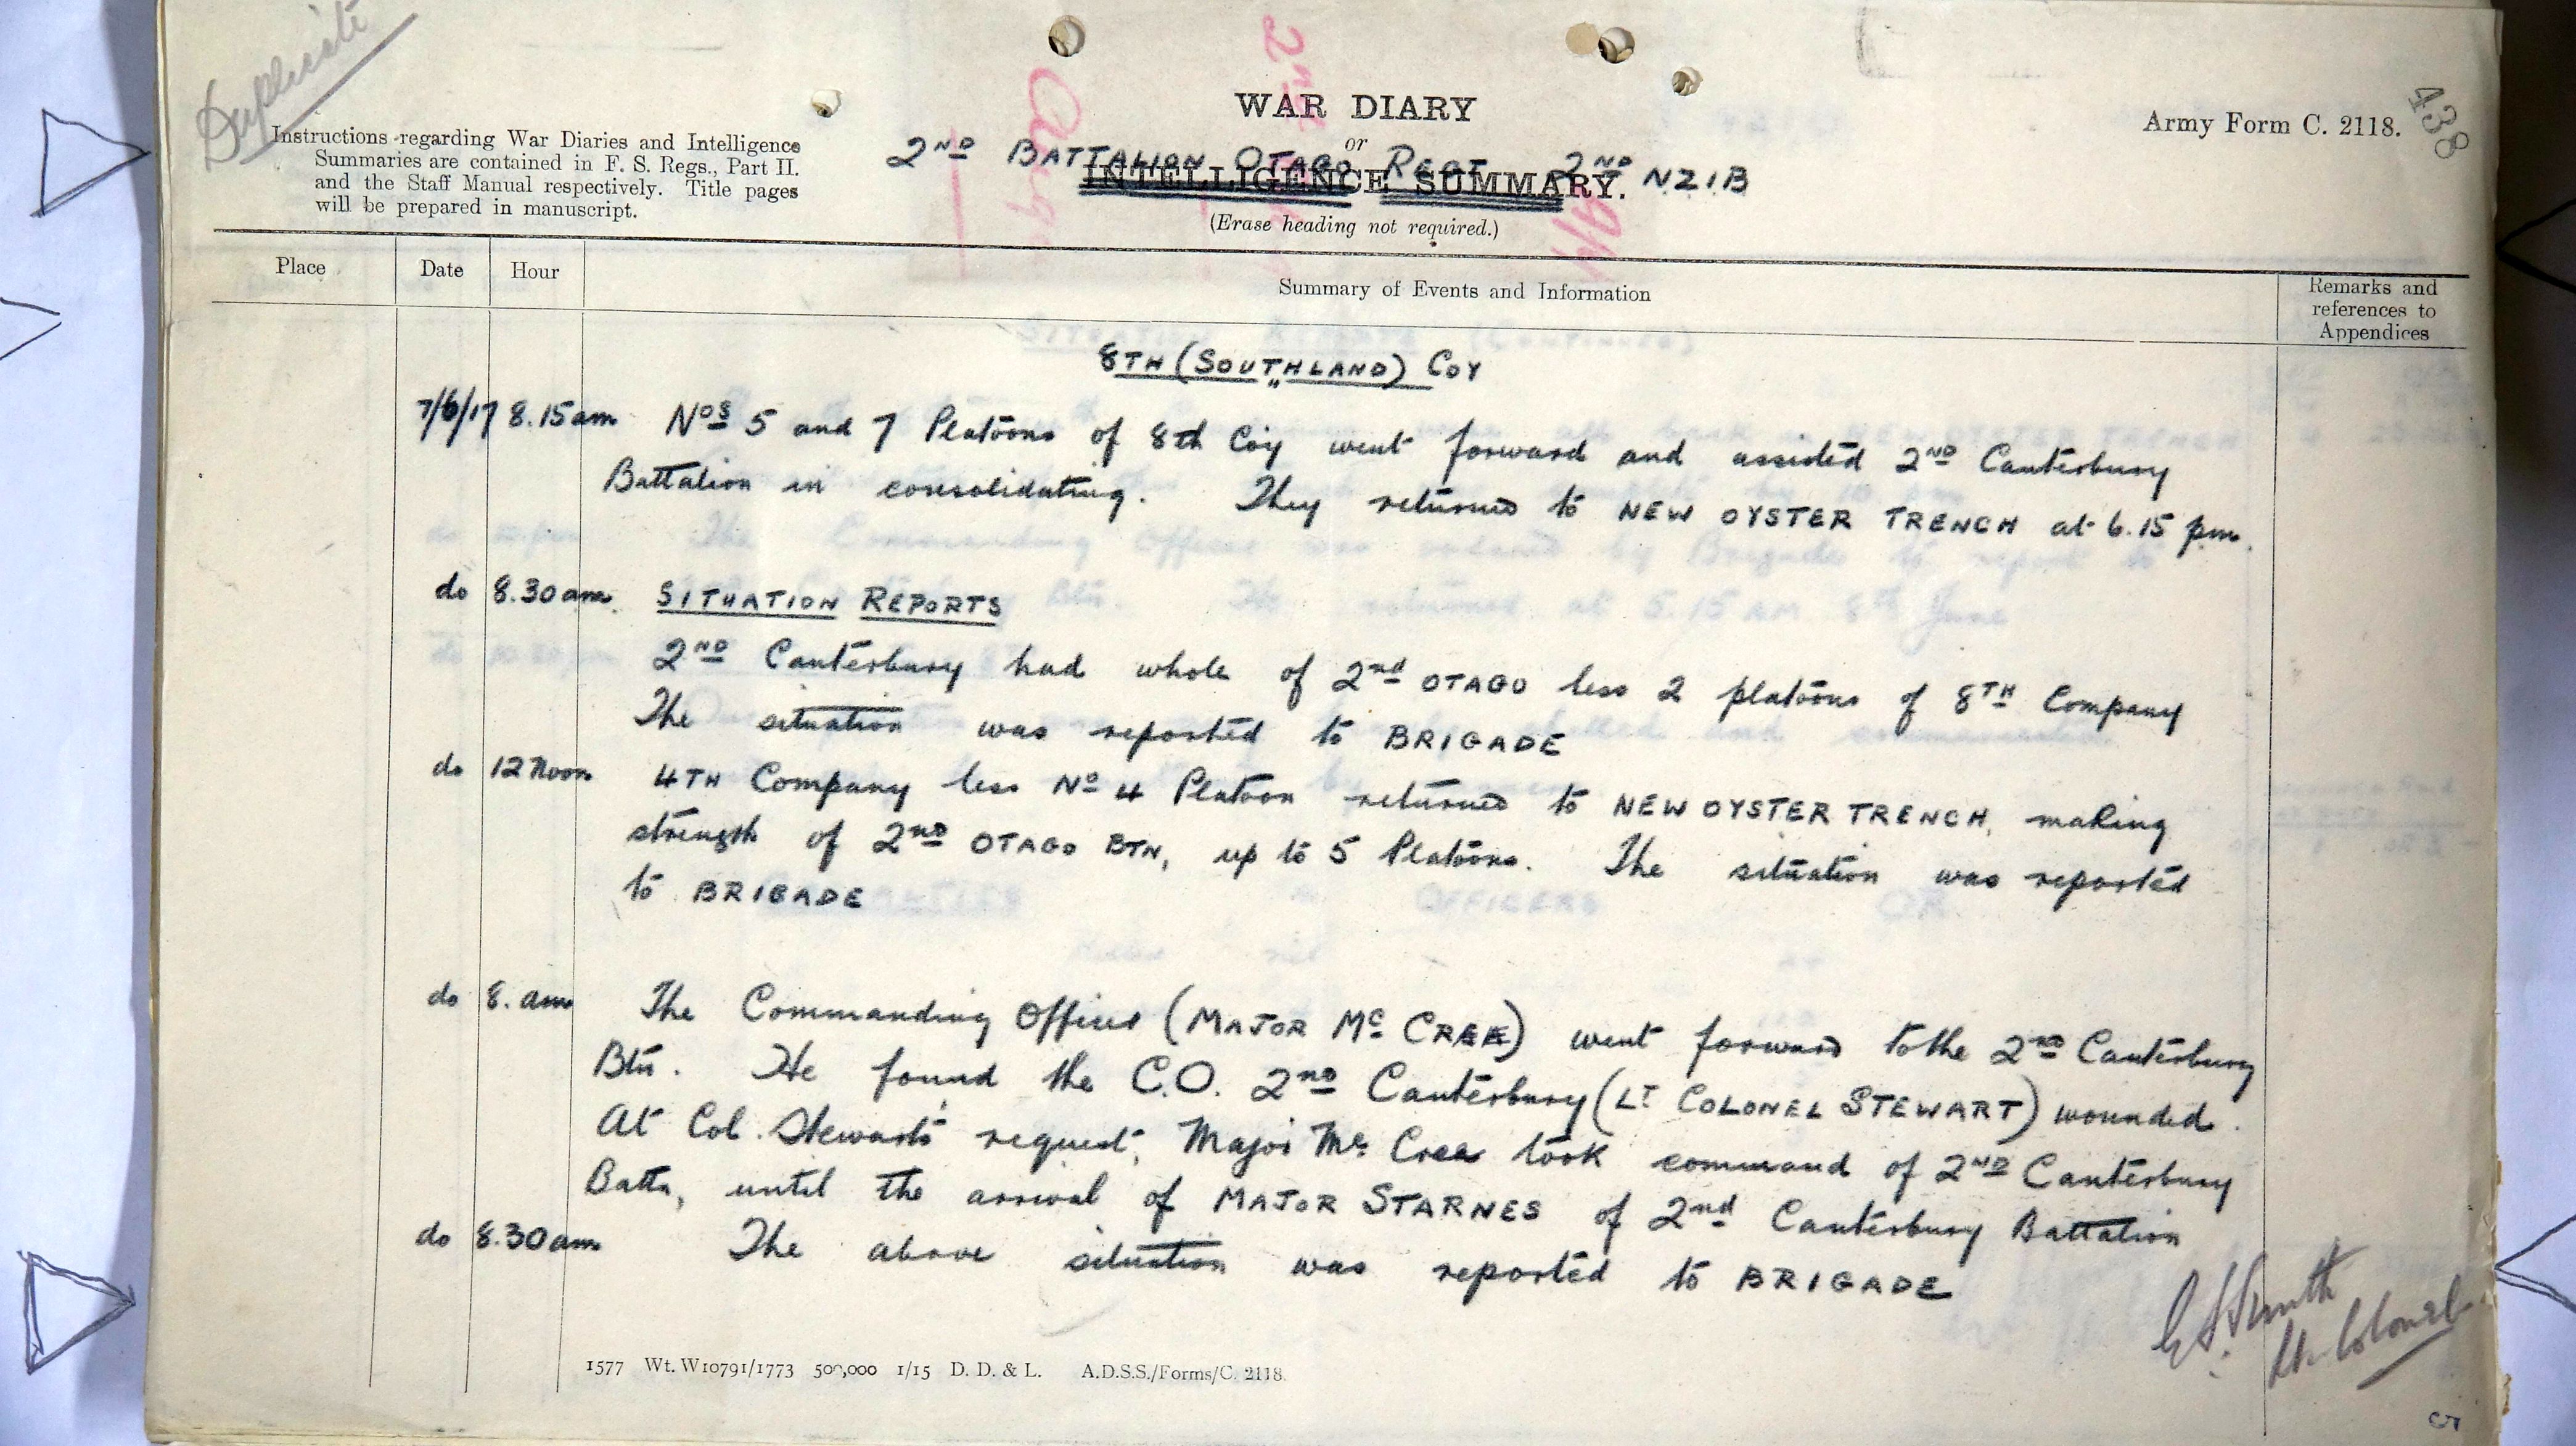 Duplicate
438
WAR DIARY
or
INTELLIGENCE SUMMARY.
2ND BATTALION OTAGO REGT 2ND N.Z.I.B
(Erase heading not required.)
Army Form C. 2118.
Instructions regarding War Diaries and Intelligence
Summaries are contained in F. S. Regs., Part II.
and the Staff Manual respectively. Title pages
will be prepared in manuscript.
Place Date Hour Summary of Events and Information Remarks and
references to
Appendices
8TH (SOUTHLAND) COY
7/6/17 8.15am Nos 5 and 7 Platoons of 8th Coy went forward and assisted 2ND Canterbury
Battalion in consolidating. They returned to NEW OYSTER TRENCH at 6.15 pm.
do 8.30am. SITUATION REPORTS
2ND Canterbury had whole of 2nd OTAGO less 2 platoons of 8TH Company
The situation was reported to BRIGADE
do 12 Noon 4TH Company less No 4 Platoon returned to NEW OYSTER TRENCH, making
strength of 2ND OTAGO BTN, up to 5 Platoons. The situation was reported
to BRIGADE
do 8. am The Commanding Officer (MAJOR Mc CREE) went forward to the 2ND Canterbury
Btn. He found the C.O. 2ND Canterbury (LT COLONEL STEWART) wounded.
At Col. Stewarts request, Major Mc Cree took command of 2ND Canterbury
Battn, until the arrival of MAJOR STARNES of 2nd Canterbury Battalion
do 8.30am The above situation was reported to BRIGADE
Smith
Lt. Colonel
1577 Wt. W10791/1773 500,000 1/15 D. D. & L. A.D.S.S./Forms/C. 2118.